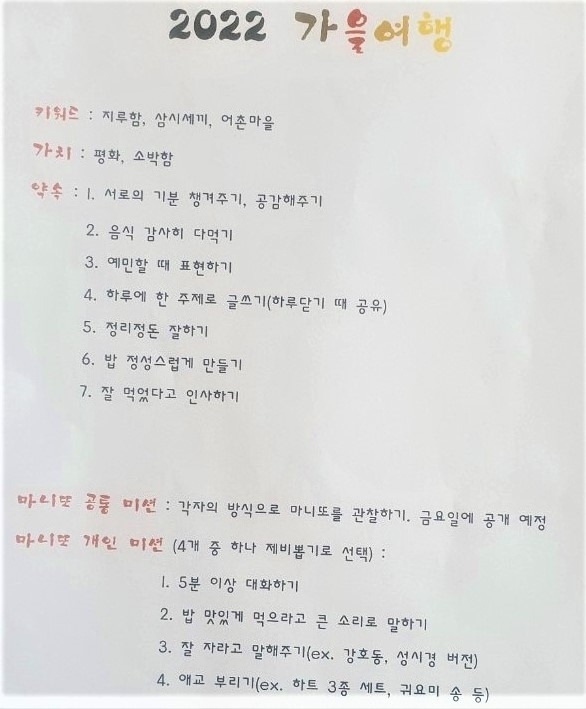 2022 가을여행
키워드 : 지루함, 삼시세끼, 어촌마을
가치 : 평화, 소박함
약속 : 1. 서로의 기분 챙겨주기, 공감해주기
2. 음식 감사히 다먹기
3. 예민할 때 표현하기
4. 하루에 한 주제로 글쓰기(하루닫기 때 공유)
5. 정리정돈 잘하기
6. 밥 정성스럽게 만들기
7. 잘 먹었다고 인사하기
마니또 공통 미션 : 각자의 방식으로 마니또를 관찰하기. 금요일에 공개 예정
마니또 개인 미션 (4개 중 하나 제비뽑기로 선택) :
1. 5분 이상 대화하기
2. 밥 맛있게 먹으라고 큰 소리로 말하기
3. 잘 자라고 말해주기(ex. 강호동, 성시경 버전)
4. 애교 부리기(ex. 하트 3종 세트, 귀요미 송 등)